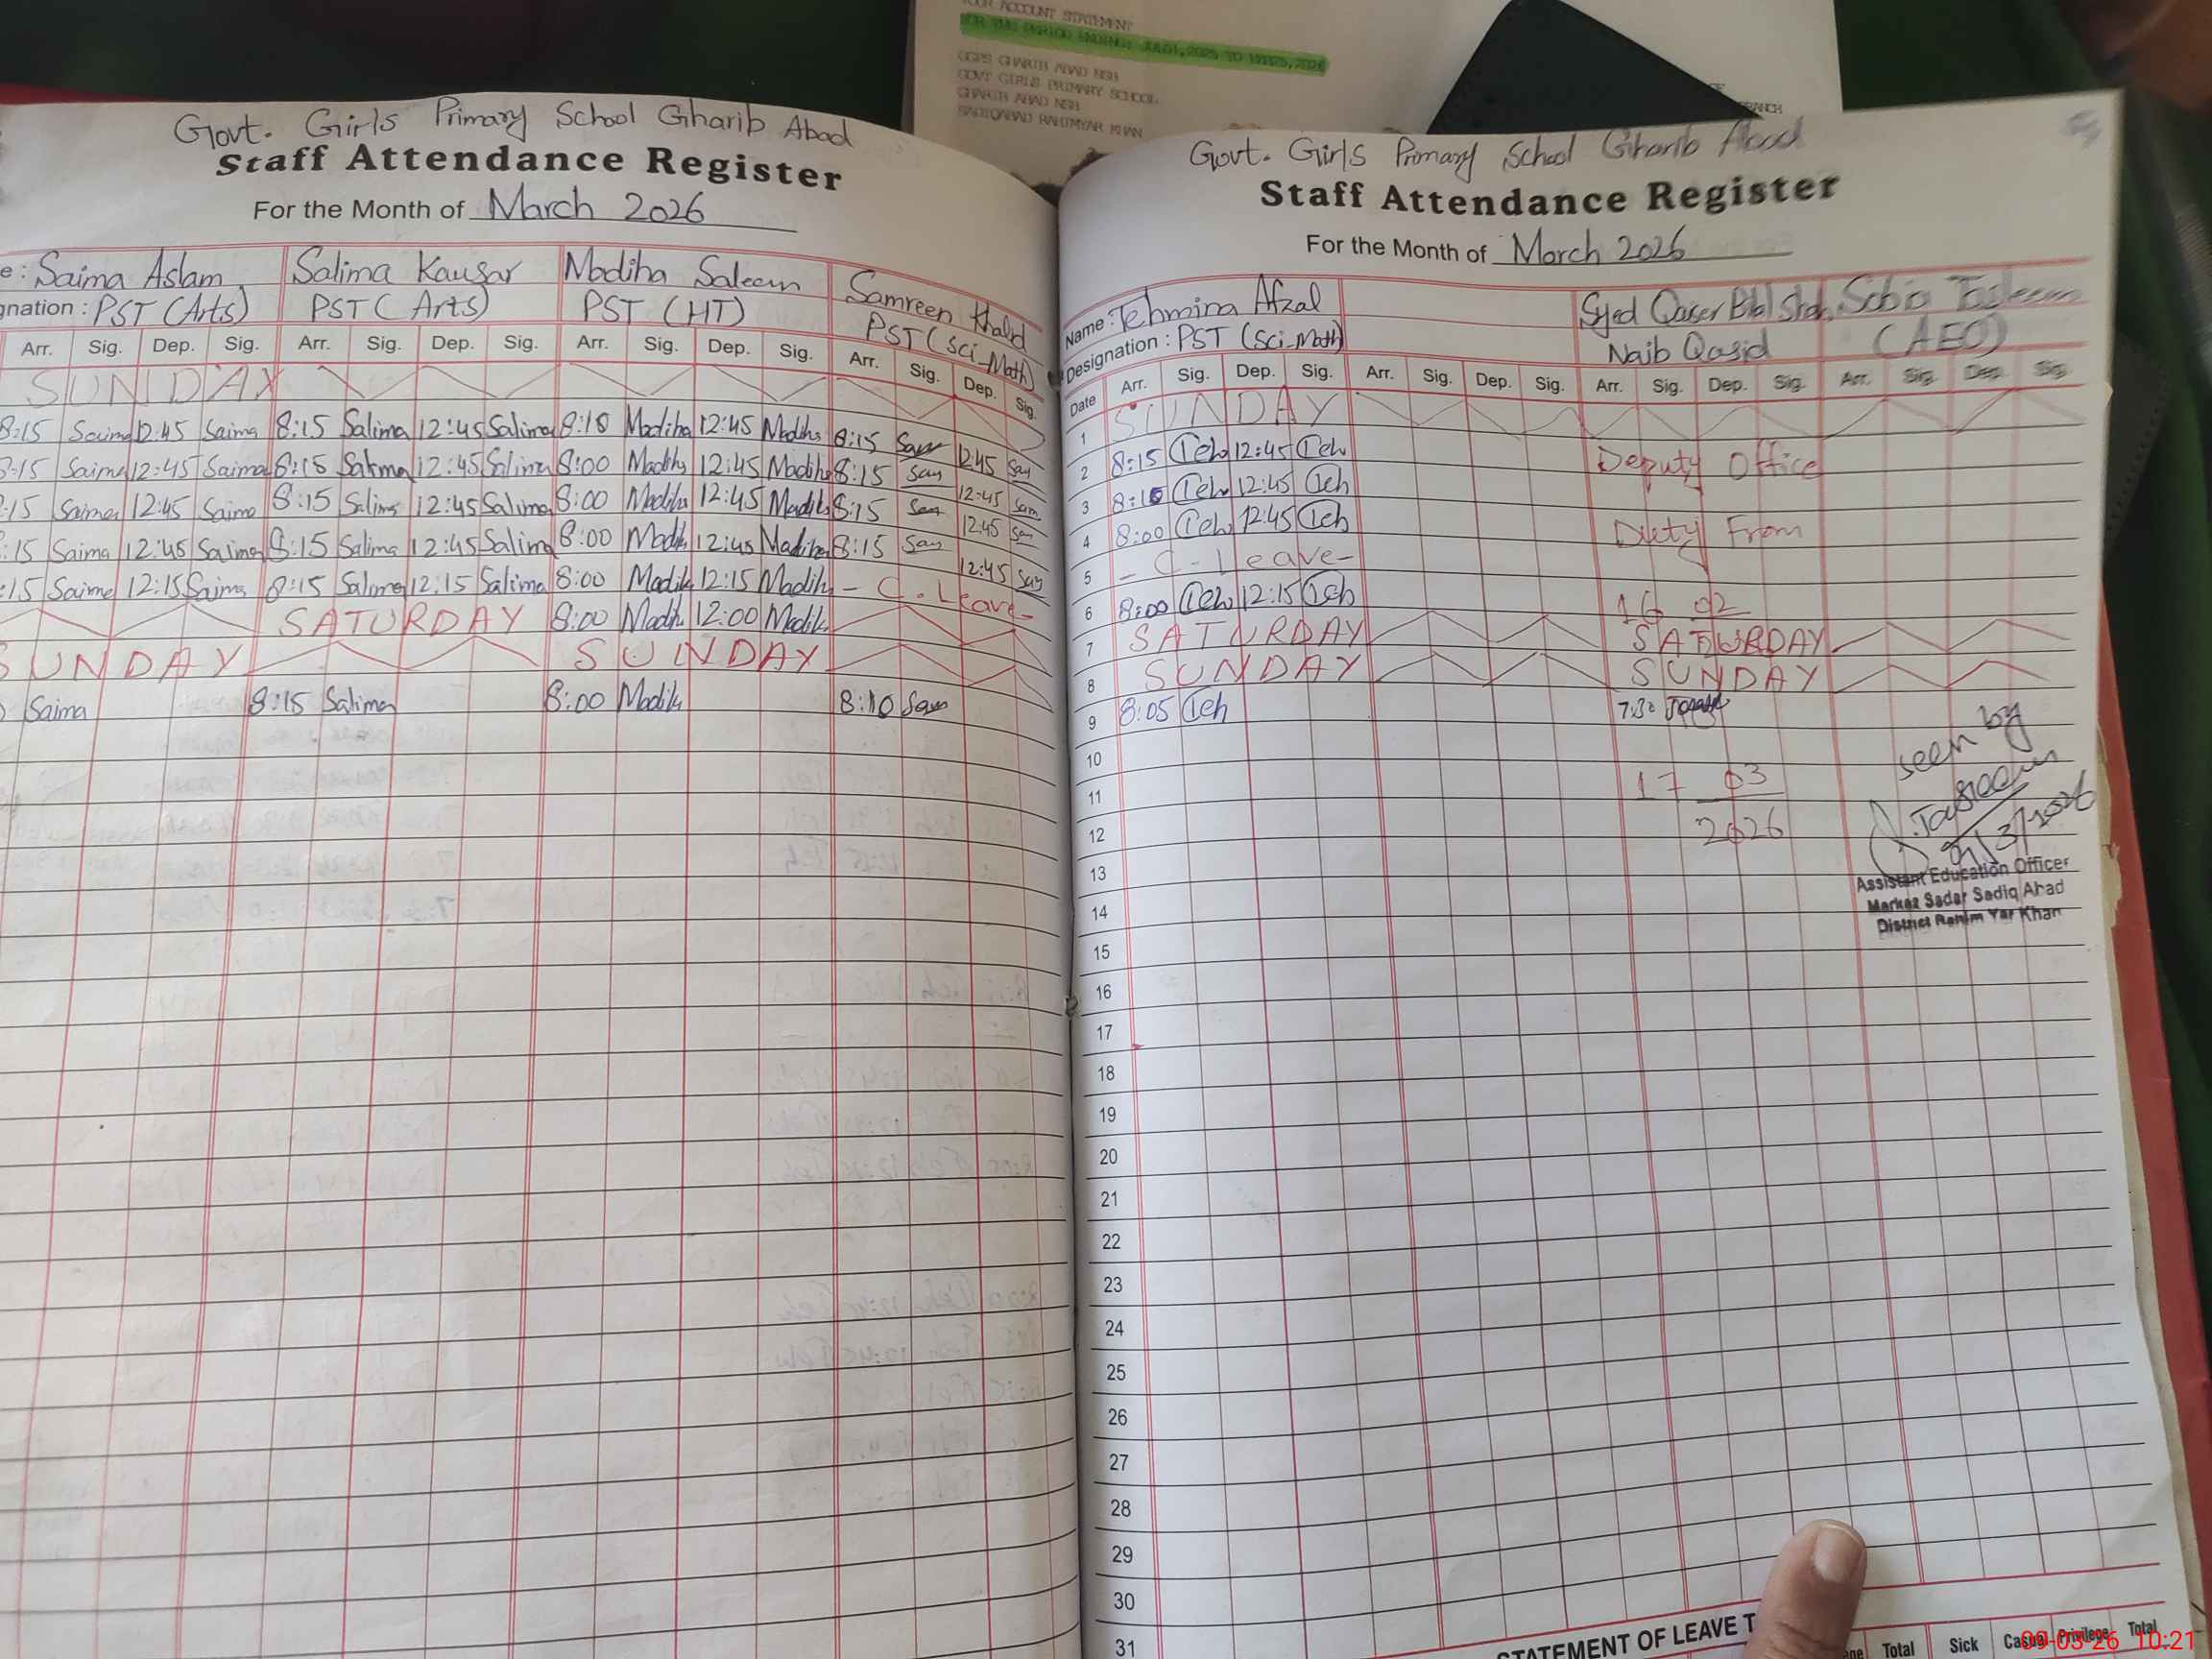 YOUR ACCOUNT STATEMENT
FOR THE PERIOD ENDING: JUL01,2025 TO
GGPS GHARIB ABAD NSB
GOVT GIRLS PRIMARY SCHOOL
GHARIB ABAD NSB
SADIQABAD RAHIMYAR KHAN
BRANCH
Govt. Girls Primary School Gharib Abad
Staff Attendance Register
For the Month of March 2026
e: Saima Aslam Salima Kausar Madiha Saleem Samreen Khalid
gnation : PST (Arts) PST (Arts) PST (HT) PST (Sci_Math)
Arr. Sig. Dep. Sig. Arr. Sig. Dep. Sig. Arr. Sig. Dep. Sig. Arr. Sig. Dep. Sig.
SUNDAY
8:15 Saima 12:45 Saima 8:15 Salima 12:45 Salima 8:10 Madiha 12:45 Madiha 8:15 Sam 12:45 Sam
:15 Saima 12:45 Saima 8:15 Salima 12:45 Salima 8:00 Madiha 12:45 Madiha 8:15 Sam 12:45 Sam
:15 Saima 12:45 Saima 8:15 Salima 12:45 Salima 8:00 Madiha 12:45 Madiha 8:15 Sam 12:45 Sam
:15 Saima 12:45 Saima 8:15 Salima 12:45 Salima 8:00 Madih 12:45 Madiha 8:15 Sam 12:45 Sam
:15 Saima 12:15 Saima 8:15 Salima 12:15 Salima 8:00 Madih 12:15 Madih - C. Leave-
SATURDAY 8:00 Madih 12:00 Madih
SUNDAY SUNDAY
Saima 8:15 Salima 8:00 Madih 8:10 Sam
Govt. Girls Primary School Gharib Abad
Staff Attendance Register
For the Month of March 2026
Name: Tehmina Afzal Syed Qaser Bilal Shah Sobia Tasleem
Designation : PST (Sci_Math) Naib Qasid (AEO)
Date Arr. Sig. Dep. Sig. Arr. Sig. Dep. Sig. Arr. Sig. Dep. Sig. Arr. Sig. Dep. Sig.
1 SUNDAY
2 8:15 Teh 12:45 Teh Deputy Office
3 8:10 Teh 12:45 Teh
4 8:00 Teh 12:45 Teh Duety From
5 - C. Leave-
6 8:00 Teh 12:15 Teh 16 02
7 SATURDAY SATURDAY
8 SUNDAY SUNDAY
9 8:05 Teh 7:30
10
11 17 03
12 2026
13
14
15
16
17
18
19
20
21
22
23
24
25
26
27
28
29
30
31
seen by
Tasleem
/3/2026
Assistant Education Officer
Markaz Sadar Sadiq Abad
District Rahim Yar Khan
STATEMENT OF LEAVE T
Total Sick Casual Privilege Total
09-03-26 10:21